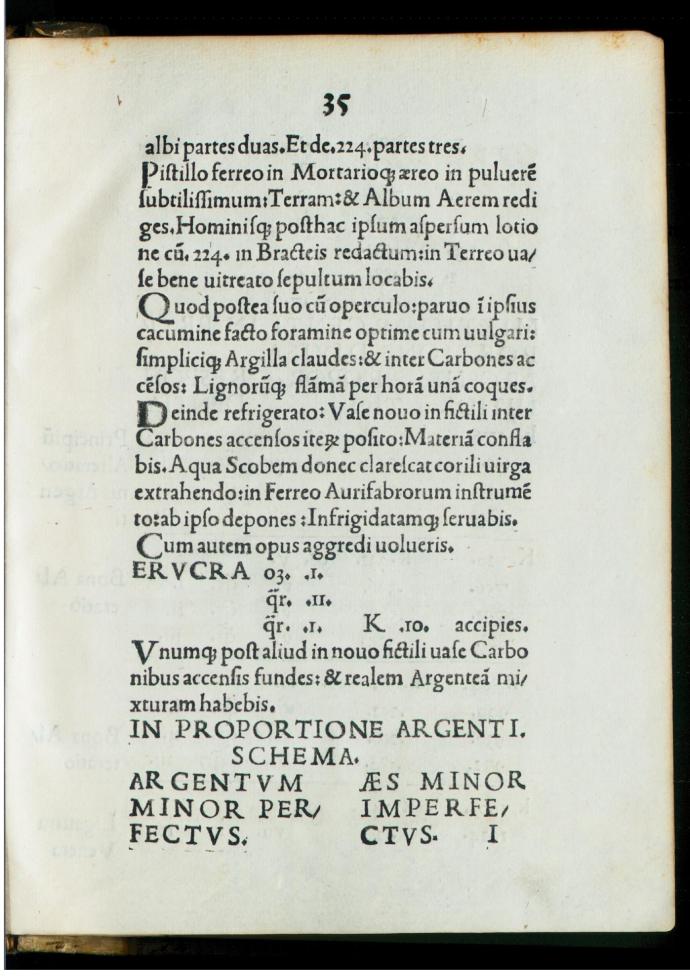 35
albi partes duas.Et de.224.partes tres.
Piſtillo ferreo in Mortarioq; æreo in puluerē
ſubtiliſſimum:Terram:& Album Aerem redi
ges.Hominiſq; poſthac ipſum aſperſum lotio
ne cū.224. in Bracteis redactum:in Terreo ua/
ſe bene uitreato ſepultum locabis.
Quod poſtea ſuo cū operculo:paruo ī ipſius
cacumine facto foramine optime cum uulgari:
ſimpliciq; Argilla claudes:& inter Carbones ac
cēſos: Lignorūq; flāmā per horā unā coques.
Deinde refrigerato: Vaſe nouo in fictili inter
Carbones accenſos iteꝝ poſito:Materiā confla
bis.Aqua Scobem donec clareſcat corili uirga
extrahendo:in Ferreo Aurifabrorum inſtrumē
to:ab ipſo depones :Infrigidatamq; ſeruabis.
Cum autem opus aggredi uolueris.
ERVCRA 03. .1.
q̄r. .11.
q̄r. .1. K .10. accipies.
Vnumq; poſt aliud in nouo fictili uaſe Carbo
nibus accenſis fundes: & realem Argenteā mi/
xturam habebis.
IN PROPORTIONE ARGENTI.
SCHEMA.
ARGENTVM ÆS MINOR
MINOR PER/ IMPERFE/
FECTVS. CTVS. I